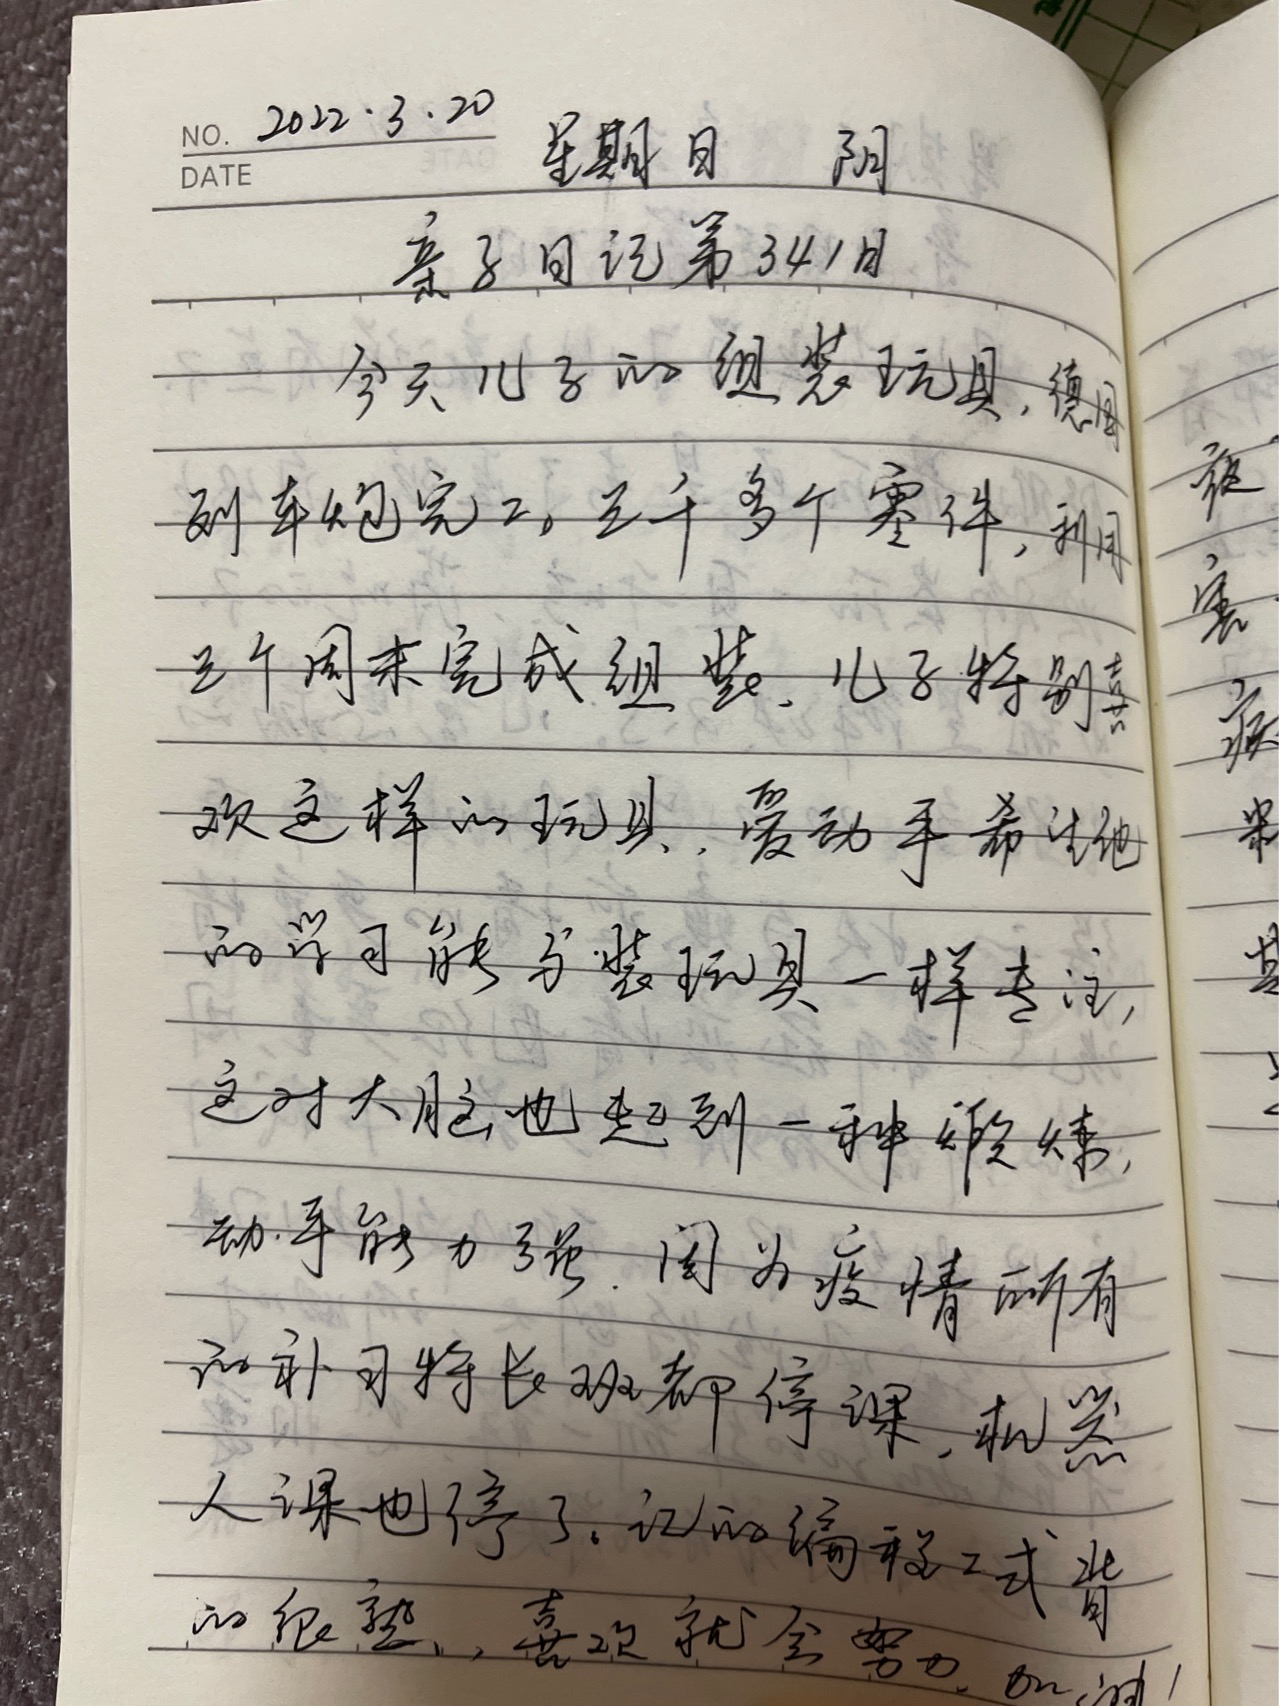 NO. 2022.3.20
DATE
星期日 阴
亲子日记第341日
今天儿子的组装玩具,德国
列车炮完工。三千多个零件,利用
三个周末完成组装,儿子特别喜
欢这样的玩具,爱动手希望他
的学习能与装玩具一样专注,
这对大脑也起到一种锻炼,
动手能力强.因为疫情所有
的补习特长班都停课,机器
人课也停了,记的编程工式背
的很熟,喜欢就会努力,加油!